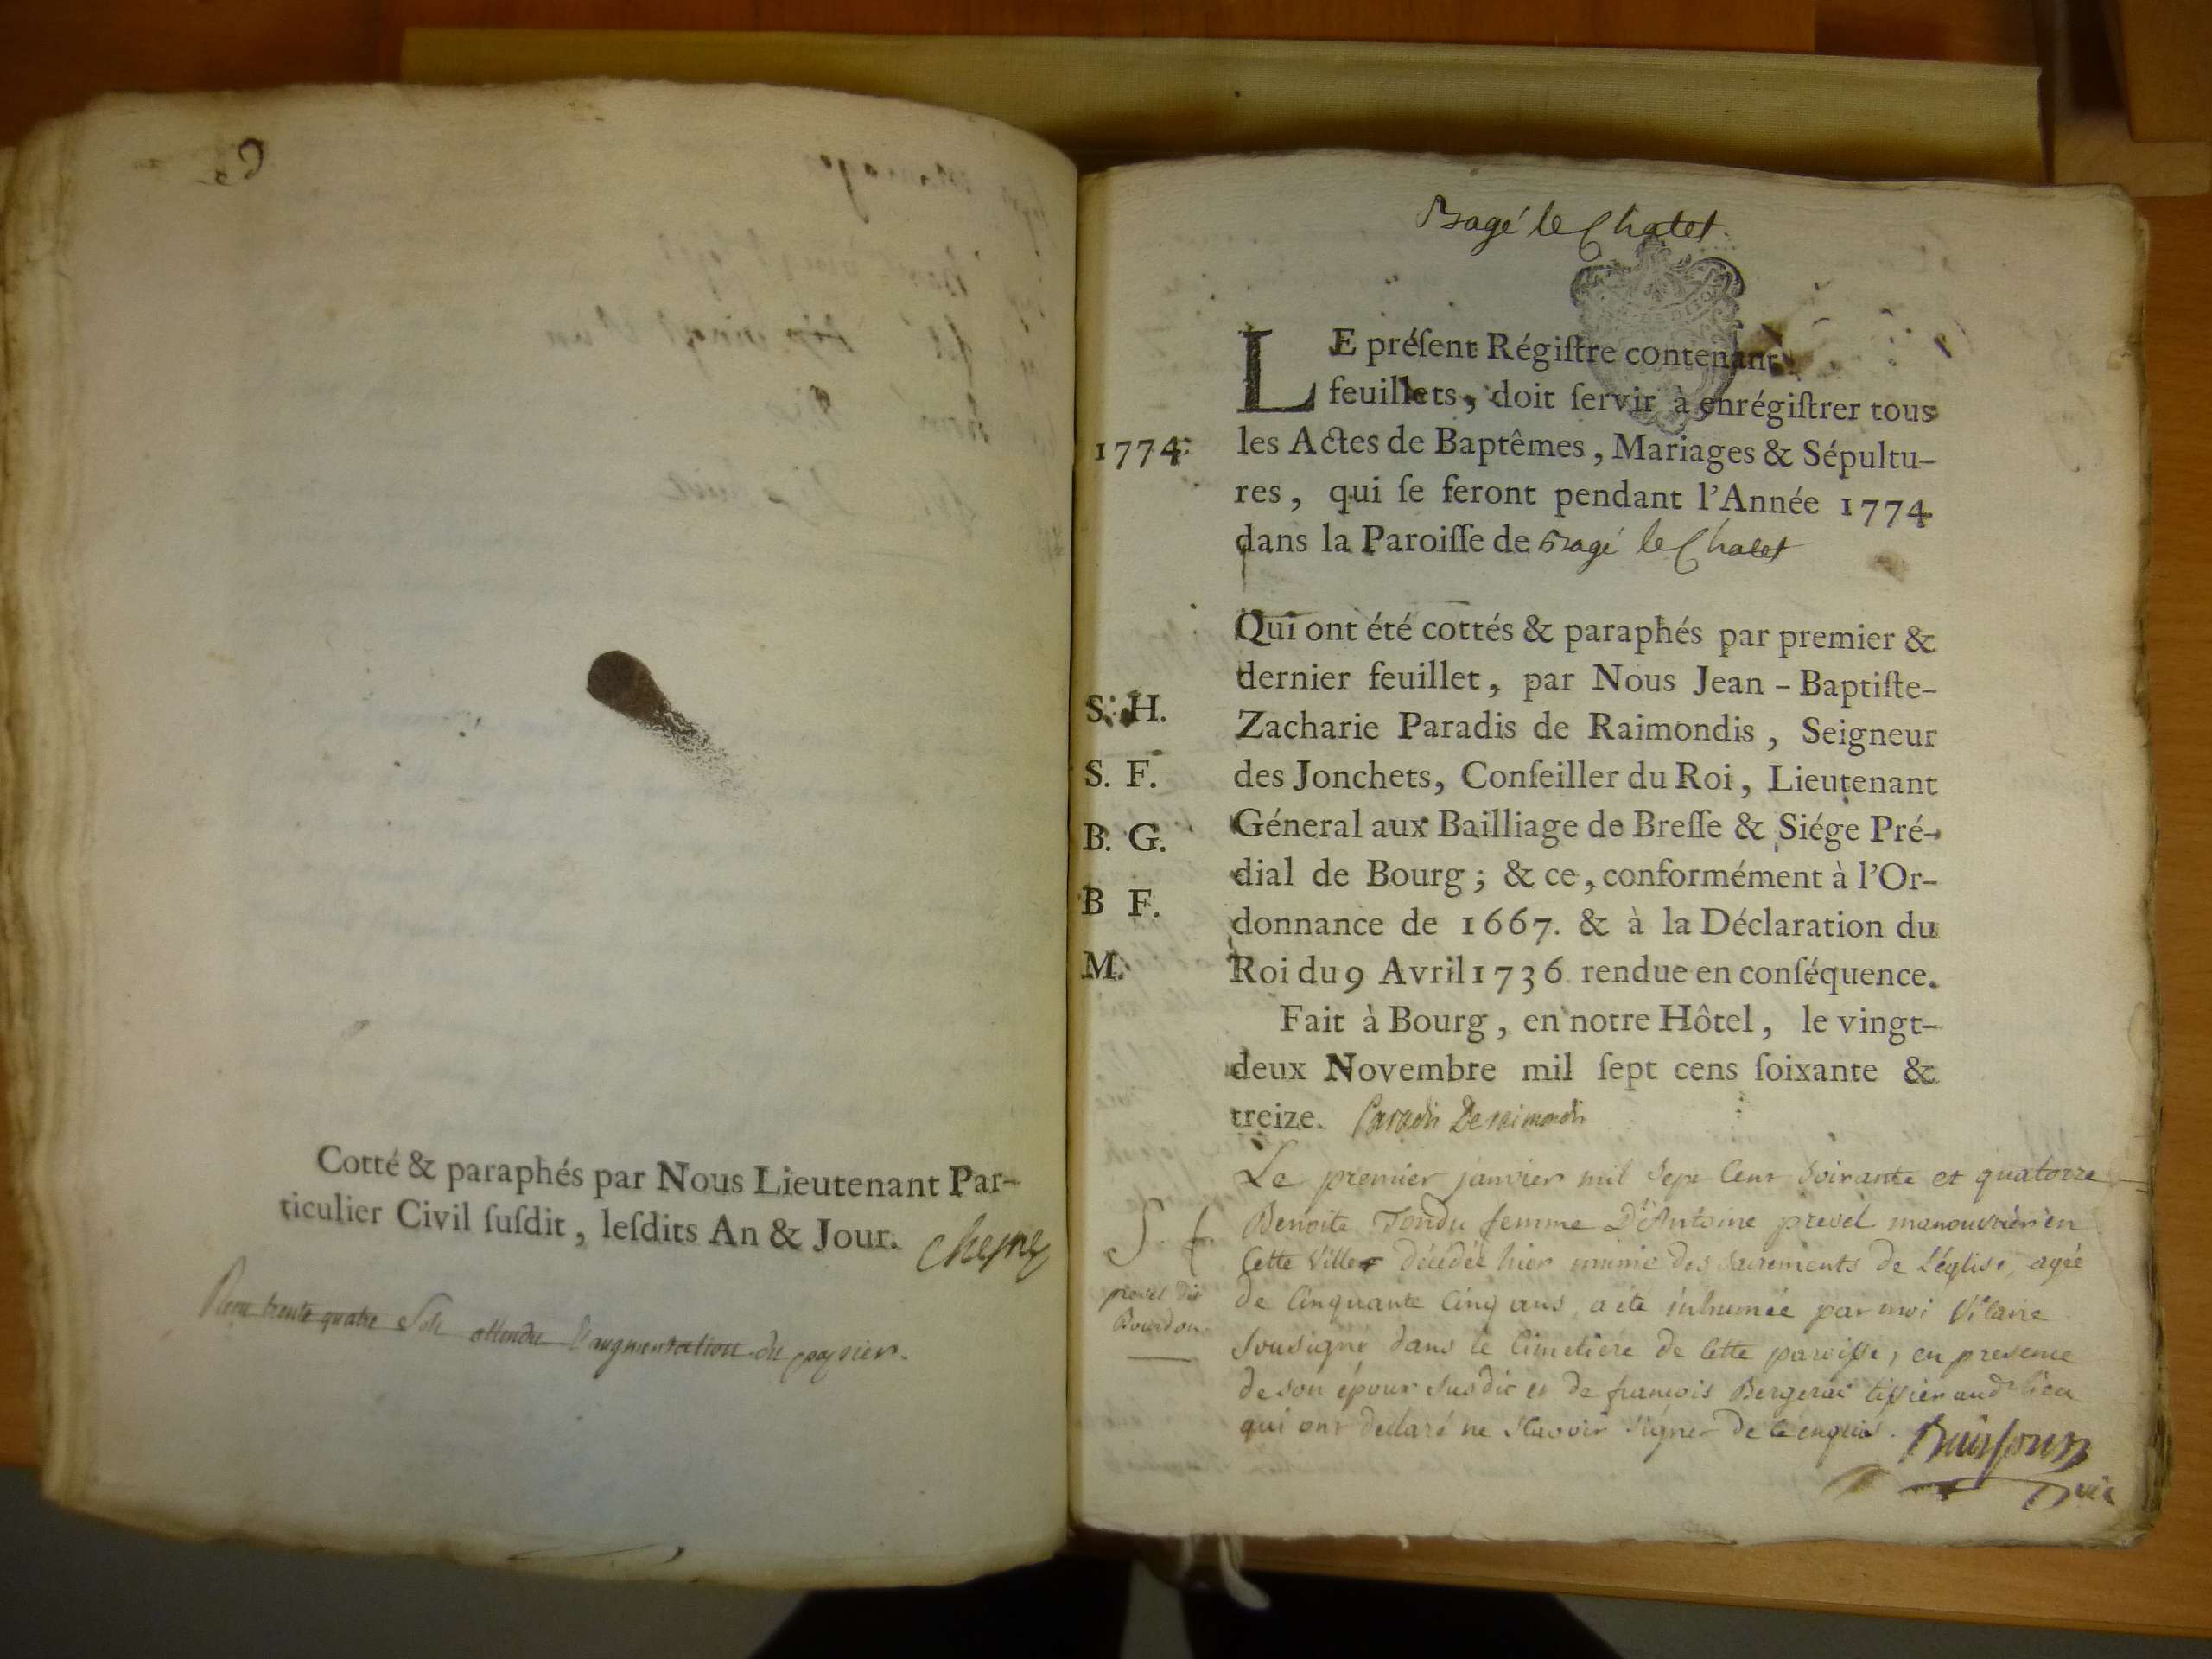 Cotté & paraphés par Nous Lieutenant Par-
ticulier Civil ſuſdit, leſdits An & Jour.
trente quatre Sols attendu l'augmentation du papier.
Bagé le Chatel
LE préſent Régiſtre contenant
feuillets, doit ſervir à enrégiſtrer tous
1774.
les Actes de Baptêmes, Mariages & Sépultu-
res, qui ſe feront pendant l'Année 1774
dans la Paroiſſe de Bagé le Chatel
Qui ont été cottés & paraphés par premier &
dernier feuillet, par Nous Jean-Baptiſte-
S. H.
Zacharie Paradis de Raimondis, Seigneur
S. F.
des Jonchets, Conſeiller du Roi, Lieutenant
B. G.
Géneral aux Bailliage de Breſſe & Siége Pré-
dial de Bourg; & ce, conformément à l'Or-
B F.
donnance de 1667. & à la Déclaration du
M.
Roi du 9 Avril 1736 rendue en conſéquence.
Fait à Bourg, en notre Hôtel, le vingt-
deux Novembre mil ſept cens ſoixante &
treize. Paradis De raimondis
Le premier janvier mil Sept Cent Soixante et quatorze
S. f.
Benoite Tondu femme D'Antoine prevel manouvrier en
Cette Ville décédée hier munie des sacrements de L'église, agée
prevel dit
de Cinquante Cinq ans a été inhumée par moi Vicaire
Bourdon.
Sousigné dans le Cimetiére de Cette paroisse, en presence
de son époux Susdit et de francois tissier aud. lieu
qui ont declaré ne Scavoir Signer de ce enquis.